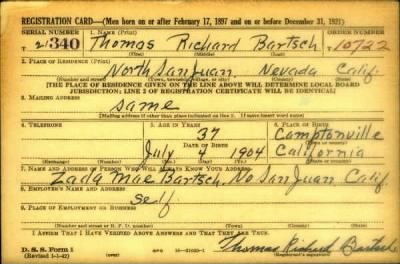 REGISTRATION CARD—(Men born on or after February 17, 1897 and on or before December 31, 1921)
SERIAL NUMBER 1. NAME (Print) ORDER NUMBER
T 340 Thomas Richard Bartsch 10722
(First) (Middle) (Last)
2. PLACE OF RESIDENCE (Print)
North San Juan, Nevada Calif.
(Number and street) (Town, township, village, or city) (County) (State)
[THE PLACE OF RESIDENCE GIVEN ON THE LINE ABOVE WILL DETERMINE LOCAL BOARD
JURISDICTION; LINE 2 OF REGISTRATION CERTIFICATE WILL BE IDENTICAL]
3. MAILING ADDRESS
same
[Mailing address if other than place indicated on line 2. If same insert word same]
4. TELEPHONE 5. AGE IN YEARS 6. PLACE OF BIRTH
37 Camptonville
DATE OF BIRTH (Town or county)
July 4 1904 California
(Exchange) (Number) (Mo.) (Day) (Yr.) (State or country)
7. NAME AND ADDRESS OF PERSON WHO WILL ALWAYS KNOW YOUR ADDRESS
Mae Bartsch, No San Juan Calif.
8. EMPLOYER'S NAME AND ADDRESS
Self
9. PLACE OF EMPLOYMENT OR BUSINESS
(Number and street or R. F. D. number) (Town) (County) (State)
I AFFIRM THAT I HAVE VERIFIED ABOVE ANSWERS AND THAT THEY ARE TRUE.
D. S. S. Form 1
(Revised 1-1-42) (over) Thomas Richard Bartsch